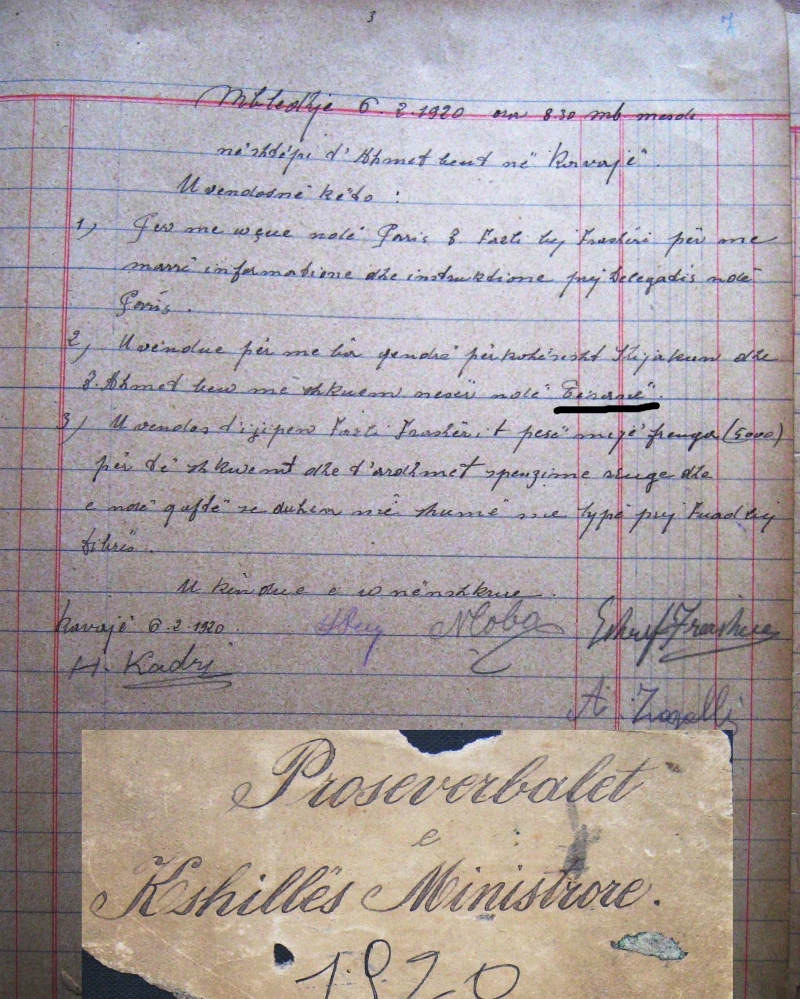 3
7
Mbledhje 6.2.1920 ora 8.30 mb mesde.
në shtëpi d'Ahmet beut në Kavajë.
U vendosnë këto :
1) Për me ndë Paris Z Fazli bej Frashëri për me
marrë informatione dhe instruktione prej Delegatës ndë
Paris.
2) U vendue për me qendrë përkohësisht Shijakun dhe
Z Ahmet beu me shkuem nesër ndë Tiranë.
3) U vendos t'i jipen Fazli Frashërit pesë mijë franga (5000)
për të shkuemt dhe t'ardhmët spenzime rruge dhe
e ndë qoftë se duhen më shumë me lypë prej Fuad bej
Dibrës.
U këndue e u nënshkrue.
Kavajë 6.2.1920
H. Kadri
Eshref Frashëri
Proseverbalet
e
Kshillës Ministrore.
1920